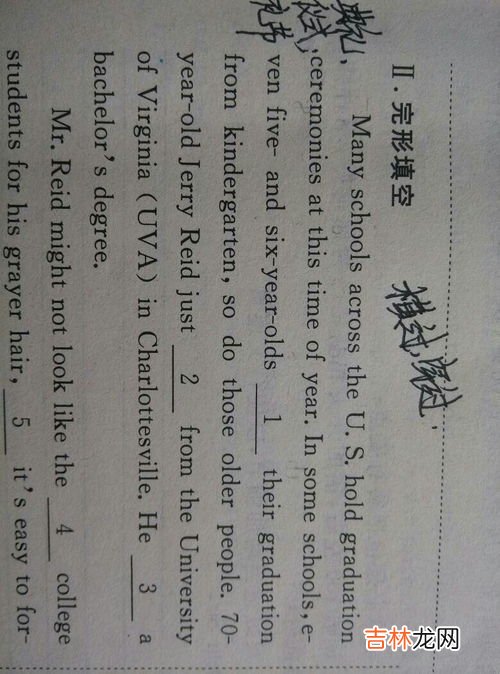 横过,穿过,
Ⅱ.完形填空
典礼,
仪式,
礼节
Many schools across the U. S. hold graduation
ceremonies at this time of year. In some schools, e-
ven five- and six-year-olds 1 their graduation
from kindergarten, so do those older people. 70-
year-old Jerry Reid just 2 from the University
of Virginia (UVA) in Charlottesville. He 3 a
bachelor's degree.
Mr. Reid might not look like the 4 college
students for his grayer hair, 5 it's easy to for-
吉林龙网